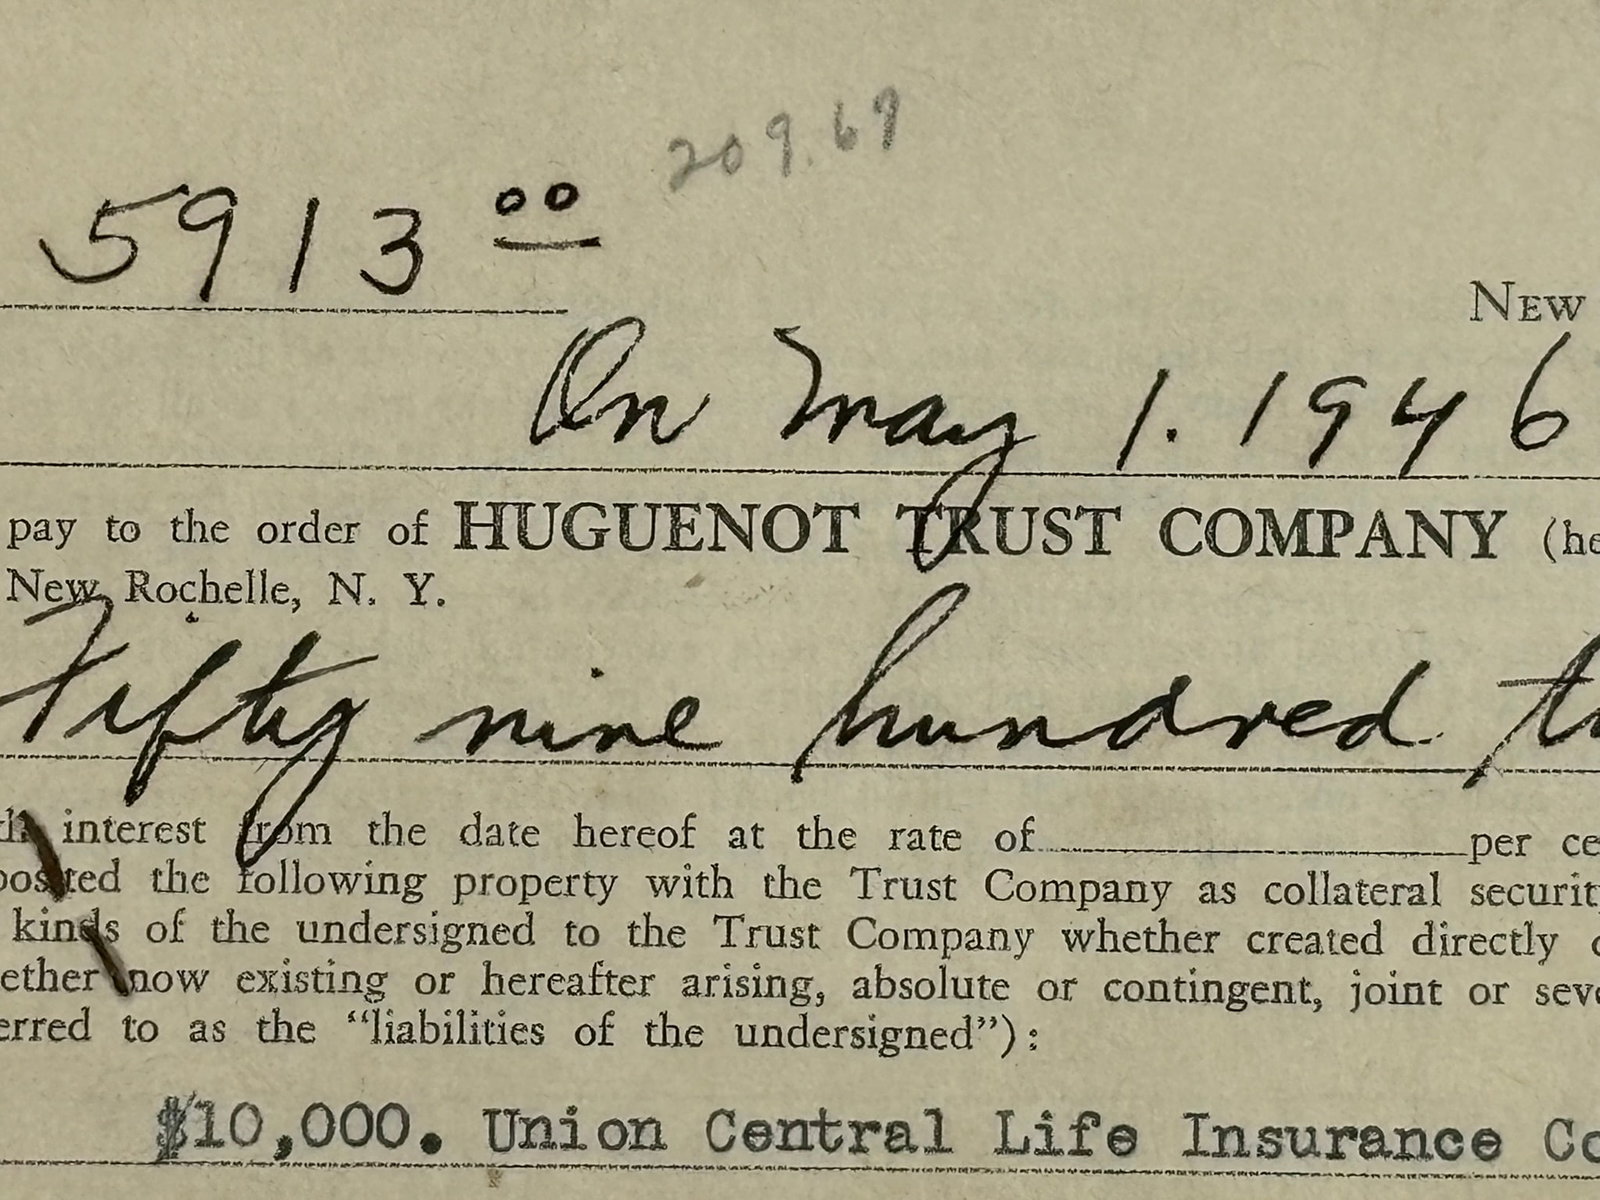 209.69
5913 00
NEW
On May 1. 1946
pay to the order of HUGUENOT TRUST COMPANY (he
New Rochelle, N. Y.
Fifty nine hundred th
interest from the date hereof at the rate of per ce
posited the following property with the Trust Company as collateral securit
kinds of the undersigned to the Trust Company whether created directly o
ether now existing or hereafter arising, absolute or contingent, joint or seve
erred to as the “liabilities of the undersigned”):
$10,000. Union Central Life Insurance Co